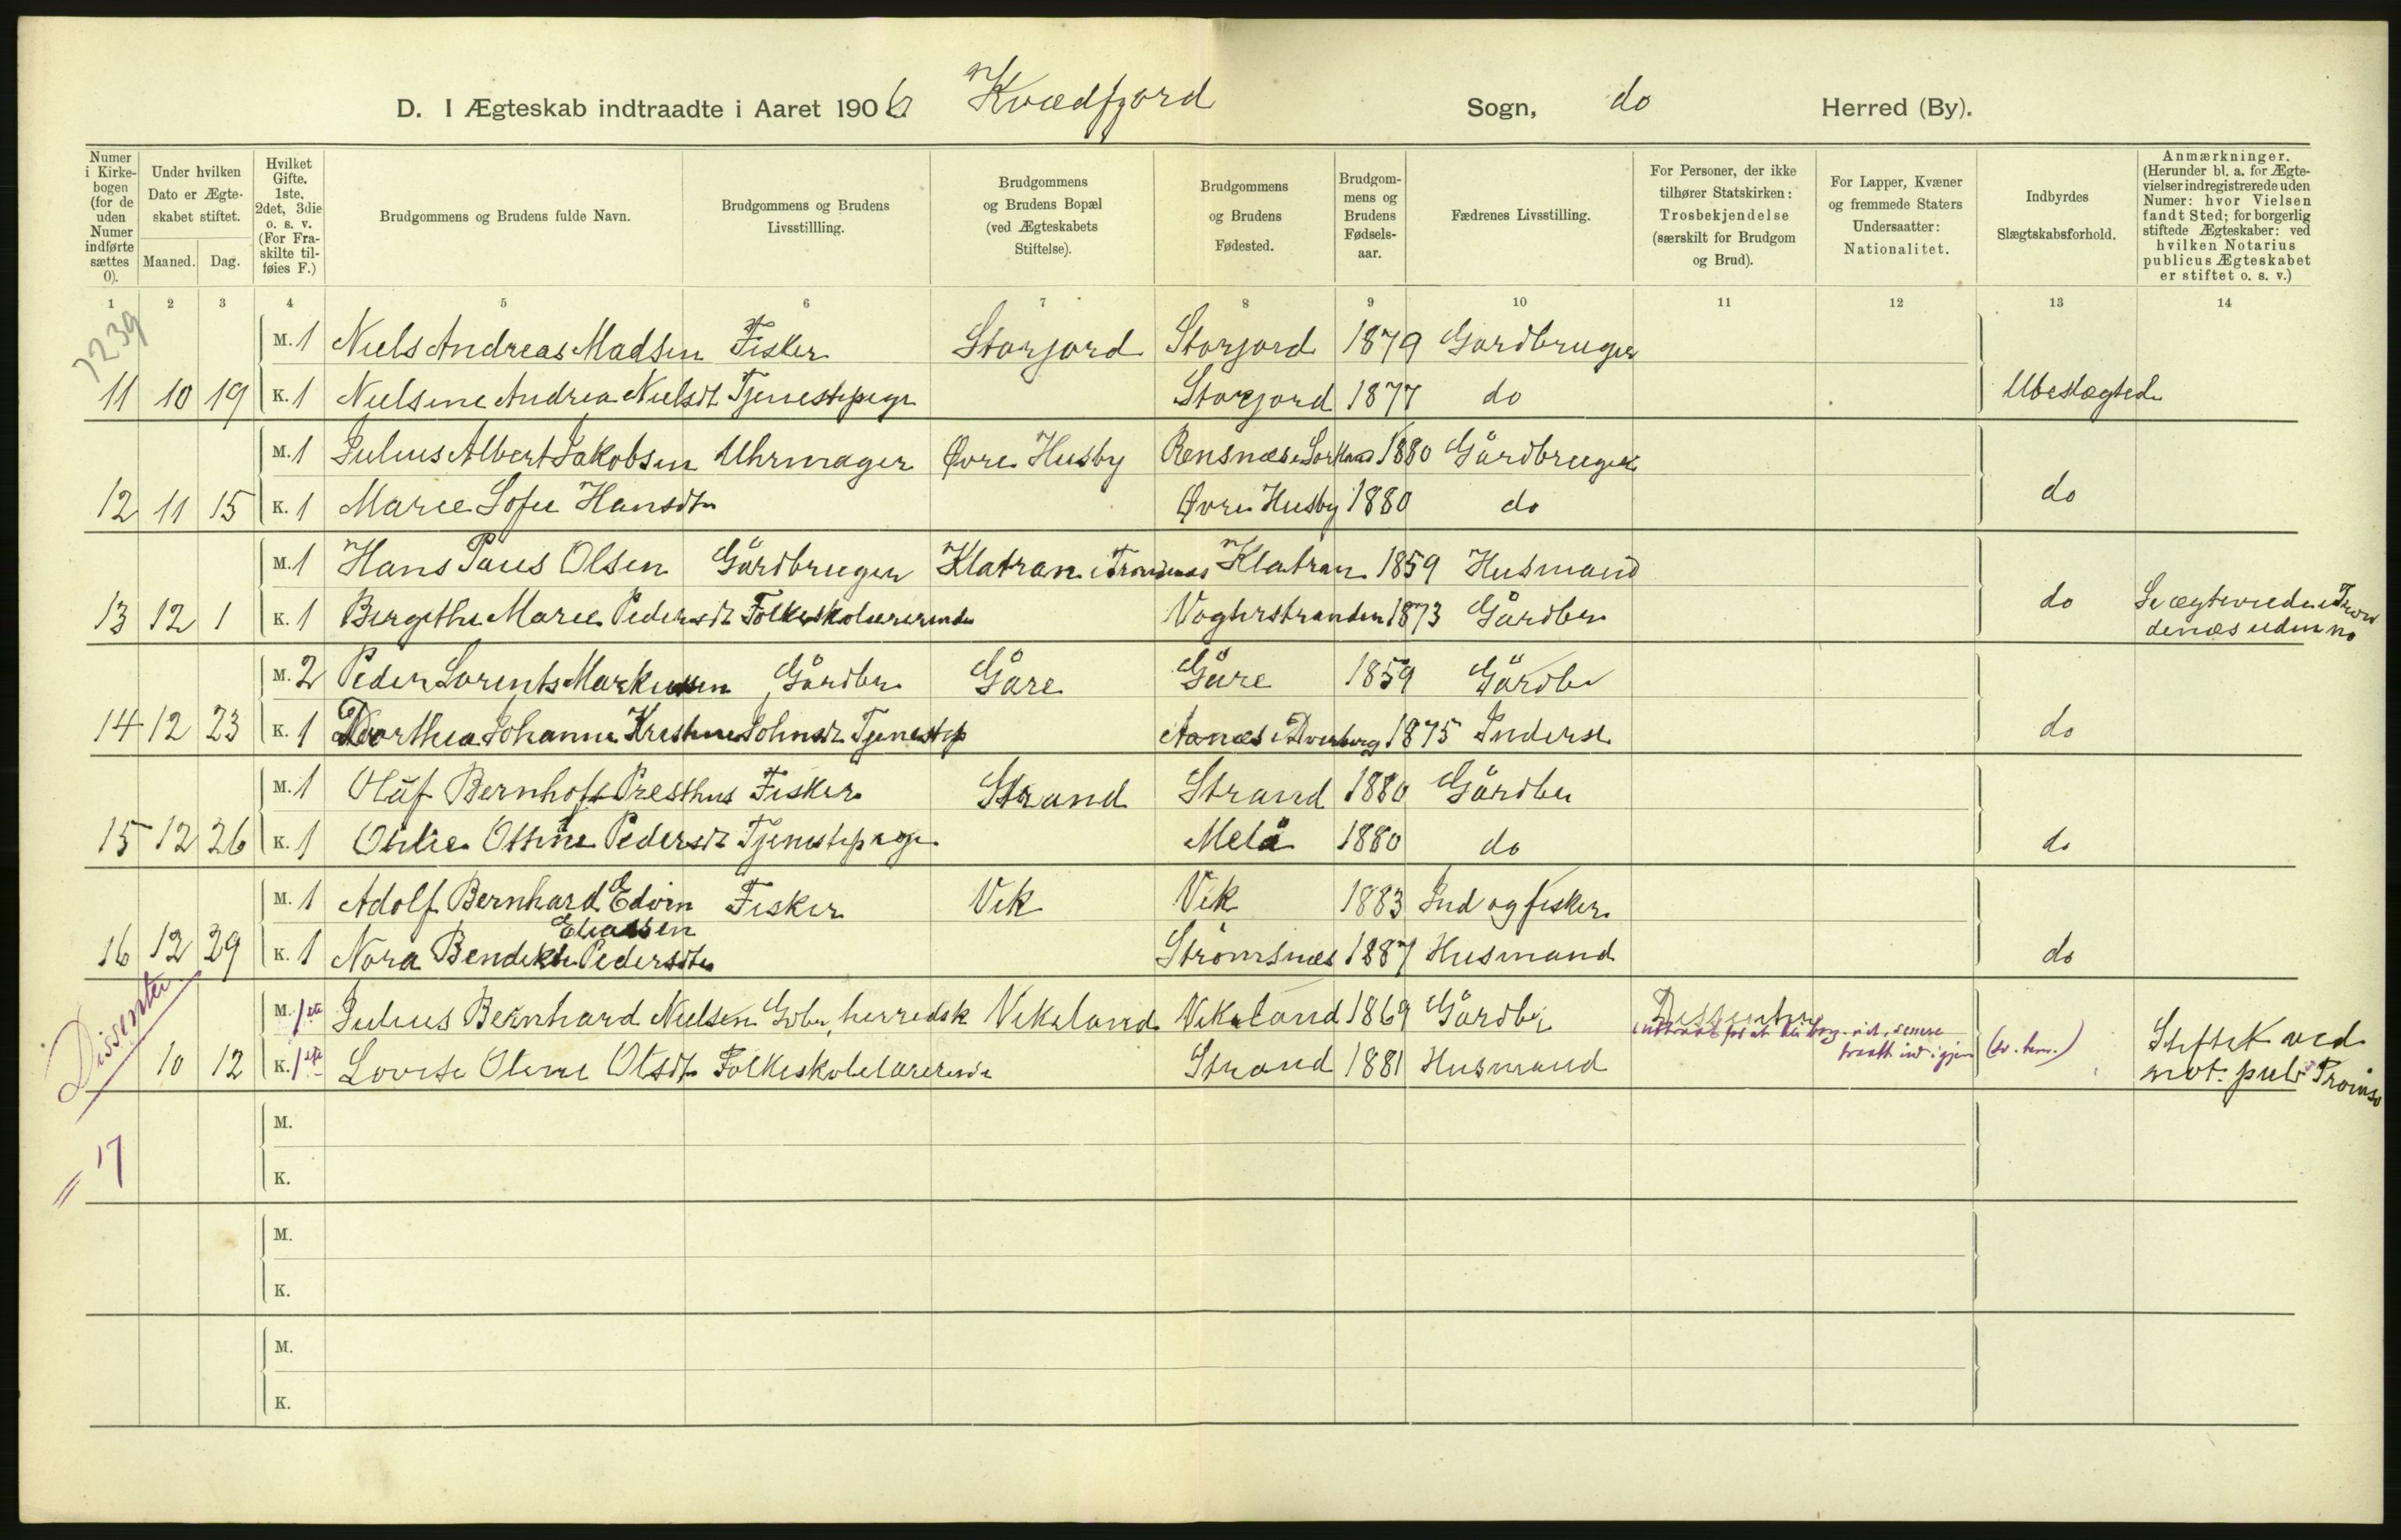 D. I Ægteskab indtraadte i Aaret 1906 Kvædfjord Sogn, do Herred (By).
Numer i Kirkebogen (for de uden Numer indførte sættes 0).
Under hvilken Dato er Ægteskabet stiftet.
Maaned. Dag.
Hvilket Gifte. 1ste, 2det, 3die o. s. v. (For Fraskilte tilføies F.)
Brudgommens og Brudens fulde Navn.
Brudgommens og Brudens Livsstillling.
Brudgommens og Brudens Bopæl (ved Ægteskabets Stiftelse).
Brudgommens og Brudens Fødested.
Brudgommens og Brudens Fødselsaar.
Fædrenes Livsstilling.
For Personer, der ikke tilhører Statskirken: Trosbekjendelse (særskilt for Brudgom og Brud).
For Lapper, Kvæner og fremmede Staters Undersaatter: Nationalitet.
Indbyrdes Slægtskabsforhold.
Anmærkninger. (Herunder bl. a. for Ægtevielser indregistrerede uden Numer: hvor Vielsen fandt Sted; for borgerlig stiftede Ægteskaber: ved hvilken Notarius publicus Ægteskabet er stiftet o. s. v.)
1 2 3 4 5 6 7 8 9 10 11 12 13 14
7239
M. 1 Niels Andreas Madsen Fisker Storjord Storjord 1879 Gardbruger
11 10 19 K. 1 Nielsine Andrea Nielsdt Tjenestepige Storjord 1877 do Ubeslægtede
M. 1 Julius Albert Jakobsen Uhrmager Øvre Husby Rensnæs 1880 Gårdbruger
12 11 15 K. 1 Marie Sofie Hansdtr Øvre Husby 1880 do do
M. 1 Hans Paus Olsen Gårdbruger Klatran i Trondenæs Klatran 1859 Husmand
13 12 1 K. 1 Bergithe Marie Pedersdt Folkeskolelærerinde Vogterstranden 1873 Gårdbr do Se ægteviede i Tron
denæs uden no
M. 2 Peder Lorents Markussen Gårdbr Gåre Gåre 1859 Gårdbr
14 12 23 K. 1 Dorthea Johanne Kristine Johnsdt Tjenestep Aanæs i Dverberg 1875 Inderst do
M. 1 Oluf Bernhoft Presthus Fisker Strand Strand 1880 Gårdbr
15 12 26 K. 1 Otilie Ottine Pedersdt Tjenestepige Melå 1880 do do
M. 1 Adolf Bernhard Edvin Fisker Vik Vik 1883 Ind og fisker
Eliassen
16 12 29 K. 1 Nora Bendikte Pedersdtr Strømsnæs 1887 Husmand do
Dissenter
M. 1ste Julius Bernhard Nielsen Grbr, herredsk Vikeland Vikeland 1869 Gårdbr Dissenter
10 12 K. 1ste Lovise Oline Olsdtr Folkeskolelærerinde Strand 1881 Husmand Stiftet ved
not. pub. Tromsø
= 17
M.
K.
M.
K.
M.
K.